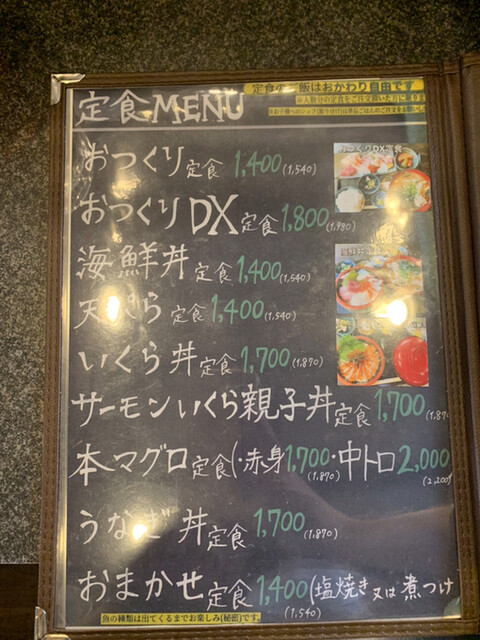 定食MENU
定食のご飯はおかわり自由です
おつくりDX定食
おつくり定食 1,400(1,540)
おつくりDX定食 1,800(1,980)
海鮮丼定食 1,400(1,540)
天ぷら定食 1,400(1,540)
いくら丼定食 1,700(1,870)
サーモンいくら親子丼定食 1,700(1,87
本マグロ定食(・赤身1,700(1,870)・中トロ2,000(2,200)
うなぎ丼定食 1,700(1,870)
おまかせ定食 1,400(1,540)(塩焼き又は煮つけ
魚の種類は出てくるまでお楽しみ(秘密)です。